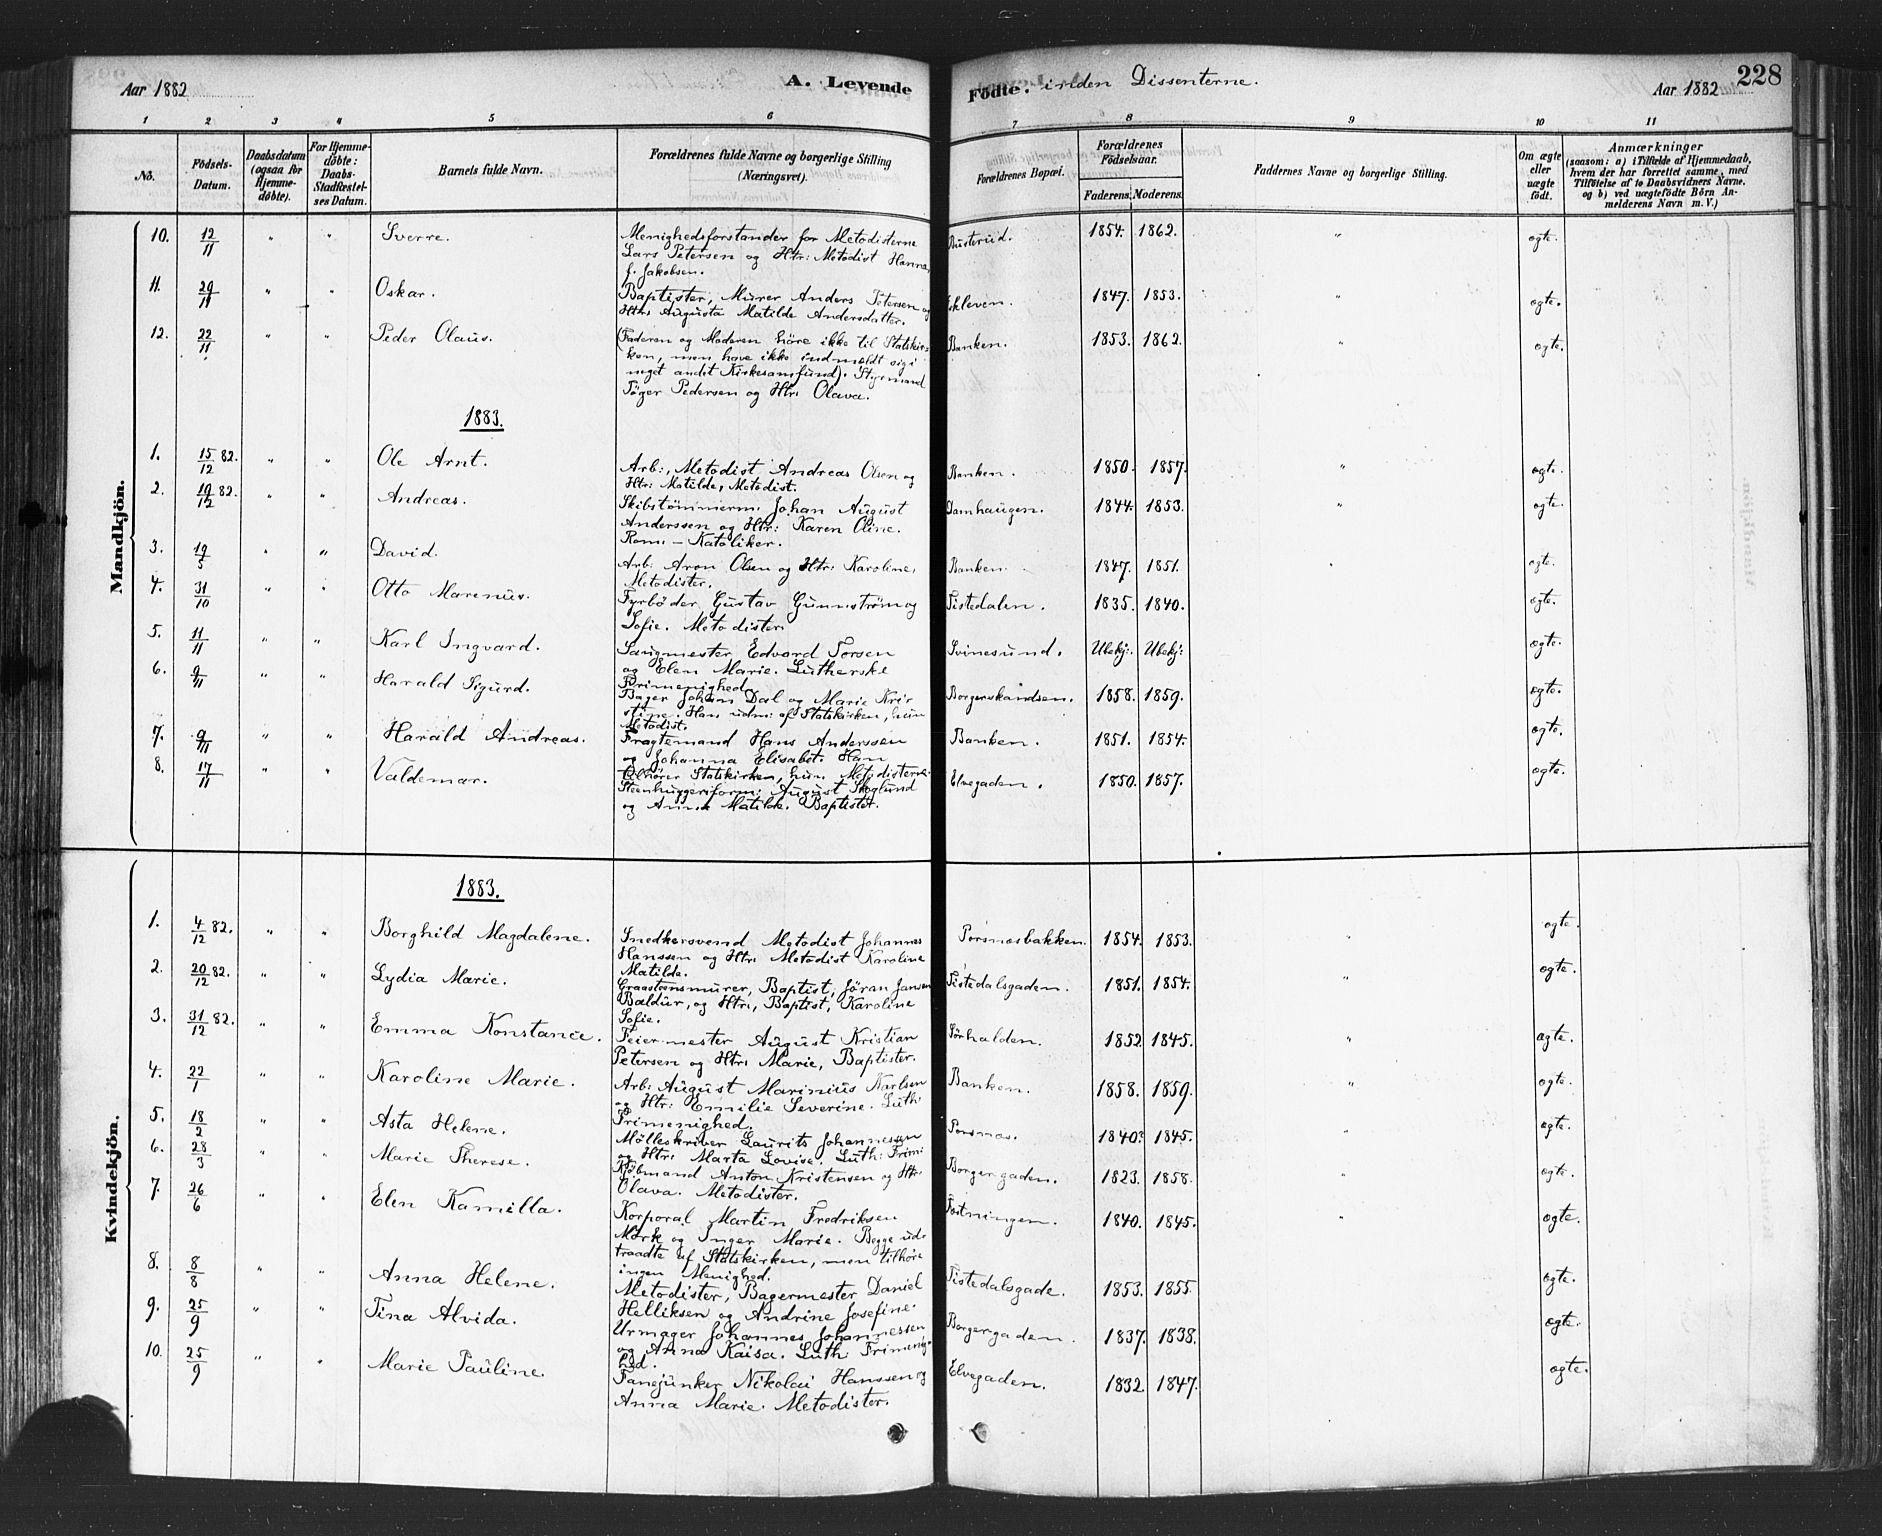 Aar 1882
A. Levende
Födte. inden Dissenterne.
Aar 1882
228
1 2 3 4 5 6 7 8 9 10 11
No.
Födsels-
Datum.
Daabsdatum
(ogsaa for
Hjemme-
döbte).
For Hjemme-
döbte:
Daabs-
Stadfæstel-
ses Datum.
Barnets fulde Navn.
Forældrenes fulde Navne og borgerlige Stilling
(Næringsvei).
Forældrenes Bopæl.
Forældrenes
Födselsaar.
Faderens. Moderens.
Faddernes Navne og borgerlige Stilling.
Om ægte
eller
uægte
födt.
Anmærkninger
(saasom: a) i Tilfælde af Hjemmedaab,
hvem der har forrettet samme, med
Tilföielse af to Daabsvidners Navne,
og b) ved uægtefödte Börn An-
melderens Navn m. V.)
Mandkjön.
10. 12/11 " " Sverre. Menighedsforstander for Metodisterne Busterud. 1854. 1862. " ægte.
Lars Petersen og Htr: Metodist Hanna,
f. Jakobsen.
11. 29/11 " " Oskar. Baptister, Murer Anders Petersen og Skleven. 1847. 1853. " ægte.
Htr: Augusta Matilde Andersdatter.
12. 22/11 " " Peder Olaus. (Faderen og Moderen höre ikke til Statskir- Banken. 1853. 1862. " ægte.
ken, men have ikke indmeldt sig i
noget andet Kirkesamfund). Styrmand
Töger Pedersen og Htr: Olava.
1883.
1. 15/12 82. " " Ole Arnt. Arb:, Metodist Andreas Olsen og Banken. 1850. 1857. " ægte.
Htr: Matilde, Metodist.
2. 19/12 82. " " Andreas. Skibstömmerm: Johan August Damhaugen. 1844. 1853. " ægte.
Anderssen og Htr: Karen Oline.
Rom: - Katoliker.
3. 19/5 " " David. Arb: Aron Olsen og Htr: Karoline, Banken. 1847. 1851. " ægte.
Metodister.
4. 31/10 " " Otto Marenus. Fyrböder Gustav Gunnström og Tistedalen. 1835. 1840. ægte.
Sofie. Metodister.
5. 11/11 " " Karl Ingvard. Saugmester Edvard Torsen Svinesund. Ubekj: Ubekj: ægte.
og Elen Marie. Lutherske
Frimenighed.
6. 9/11 " " Harald Sigurd. Bager Johan Dal og Marie Kri- Borgerskandsen. 1858. 1859. ægte.
stine. Han udm: af Statskirken, hun
Metodist.
7. 9/11 " " Harald Andreas. Fragtemand Hans Anderssen Banken. 1851. 1854. ægte.
og Johanna Elisabet. Han
tilhörer Statskirken, hun Metodisterne.
8. 17/11 " " Valdemar. Steenhuggerform: August Skoglund Elvegaden. 1850. 1857. ægte.
og Anna Matilde. Baptister.
Kvindekjön.
1883.
1. 4/12 82. " " Borghild Magdalene. Snedkersvend Metodist Johannes Porsnæsbakken. 1854. 1853. " ægte.
Hanssen og Htr: Metodist Karoline
Matilde.
2. 20/12 82. " " Lydia Marie. Graastensmurer, Baptist, Jöran Jansen Tistedalsgaden. 1851. 1854. " ægte.
Baldur, og Htr:, Baptist, Karoline
Sofie.
3. 31/12 82. " " Emma Konstance. Feiermester August Kristian Sörhalden. 1852 1845. " ægte.
Petersen og Htr: Marie, Baptister.
4. 22/1 " " Karoline Marie. Arb: August Marinius Karlsen Banken. 1858. 1859. " ægte.
og Htr: Emilie Severine. Luth:
Frimenighed.
5. 18/2 " " Asta Helene. Mölleskriver Laurits Johannessen Porsnæs. 1840? 1845. " ægte.
og Htr: Marta Lovise. Luth: Frim:
6. 28/3 " " Marie Therese. Kjöbmand Anton Kristensen og Htr: Borgergaden. 1823. 1858. " ægte.
Olava. Metodister.
7. 26/6 " " Elen Kamilla. Korporal Martin Fredriksen Fæstningen. 1840. 1845. " ægte.
Mörk og Inger Marie. Begge ud-
traadte af Statskirken, men tilhöre
ingen Menighed.
8. 8/8 " " Anna Helene. Metodister, Bagermester Daniel Tistedalsgade. 1853. 1855. ægte.
Helliksen og Andrine Josefine.
9. 25/9 " " Tina Alvida. Urmager Johannes Johannessen Borgergaden. 1837. 1838. ægte.
og Anna Kaisa. Luth: Frimenig-
hed.
10. 25/9 " " Marie Pauline. Fanejunker Nikolai Hanssen og Elvegaden. 1832. 1847. ægte.
Anna Marie. Metodister.